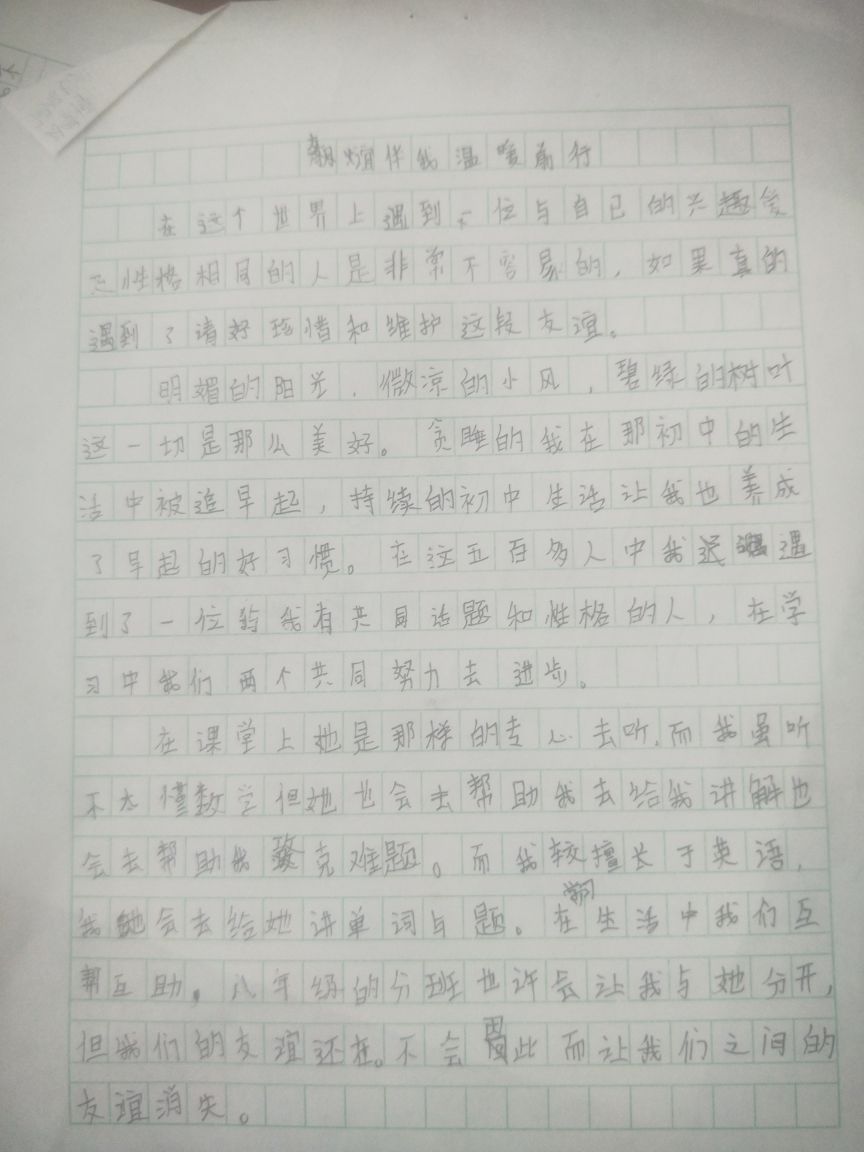 伴我温暖前行
在这个世界上遇到一位与自己的兴趣爱
性格相同的人是非常不容易的，如果真的
遇到了请好珍惜和维护这段友谊。
明媚的阳光，微凉的小风，碧绿的树叶
这一切是那么美好。贪睡的我在那初中的生
活中被迫早起，持续的初中生活让我也养成
了早起的好习惯。在这五百多人中我遇
到了一位我有共同话题和性格的人，在学
习中我们两个共同努力去进步。
在课堂上她是那样的专心去听，而我虽听
不太懂数学但她也会去帮助我去给我讲解也
会去帮助我攻克难题。而我较擅长于英语，
我会去给她讲单词与题。在学习生活中我们互
帮互助，八年级的分班也许会让我与她分开，
但我们的友谊还在。不会因此而让我们之间的
友谊消失。